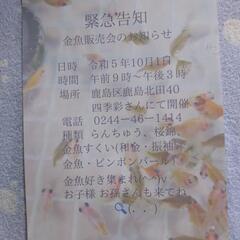 緊急告知
金魚販売会のお知らせ
日時 令和5年10月1日
時間 午前9時～午後3時
場所 鹿島区鹿島北田40
四季彩さんにて開催
電話 0244-46-1414
種類 らんちゅう、桜錦、
金魚すくい(和金・振袖
金魚・ピンポンパール)
金魚好き集まれ(^^)v
お子様お孫さんも来てね
(. . )